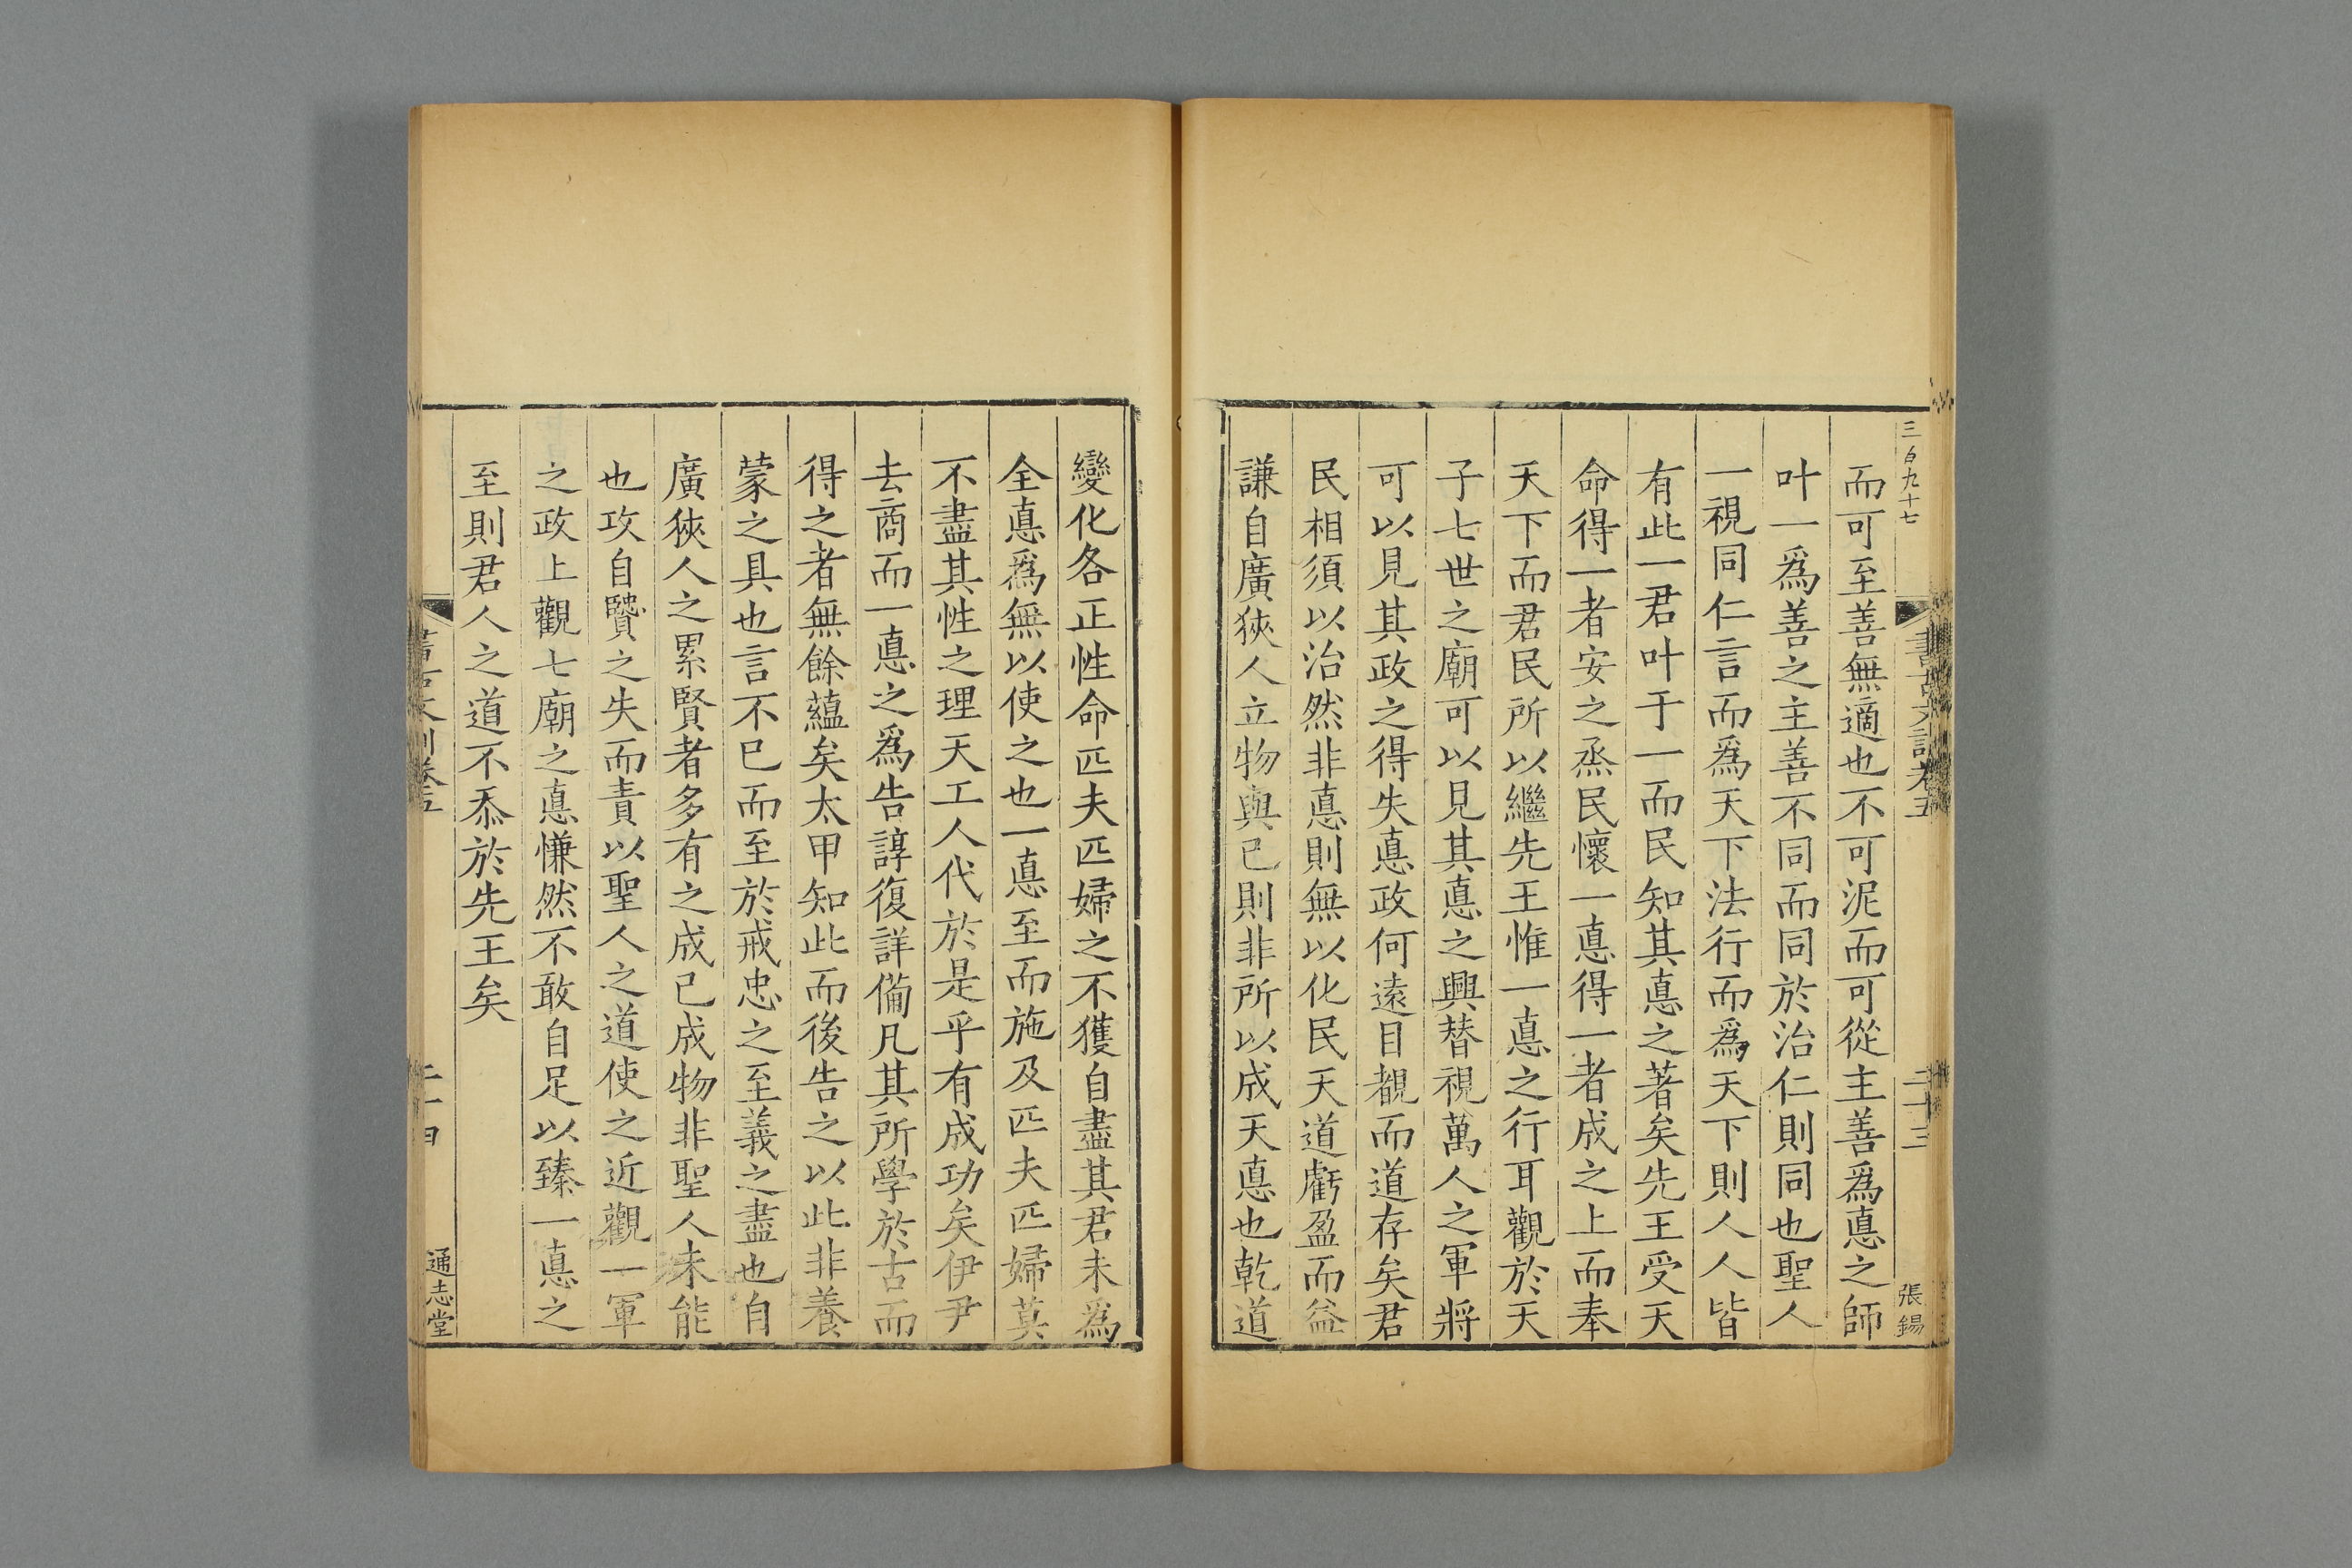 三百九十七
書古文訓卷五
二十三
張錫
而可至善無適也不可泥而可從主善爲悳之師
叶一爲善之主善不同而同於治仁則同也聖人
一視同仁言而爲天下法行而爲天下則人人皆
有此一君叶于一而民知其悳之著矣先王受天
命得一者安之烝民懷一悳得一者成之上而奉
天下而君民所以繼先王惟一悳之行耳觀於天
子七世之廟可以見其悳之興替視萬人之軍將
可以見其政之得失悳政何遠目覩而道存矣君
民相須以治然非悳則無以化民天道虧盈而益
謙自廣狹人立物與己則非所以成天悳也乾道
變化各正性命匹夫匹婦之不獲自盡其君未爲
全悳爲無以使之也一悳至而施及匹夫匹婦莫
不盡其性之理天工人代於是乎有成功矣伊尹
去商而一悳之爲告諄復詳備凡其所學於古而
得之者無餘蘊矣太甲知此而後告之以此非養
蒙之具也言不已而至於戒忠之至義之盡也自
廣狹人之累賢者多有之成己成物非聖人未能
也攻自賢之失而責以聖人之道使之近觀一軍
之政上觀七廟之悳慊然不敢自足以臻一悳之
至則君人之道不忝於先王矣
書古文訓卷五
二十四
通志堂